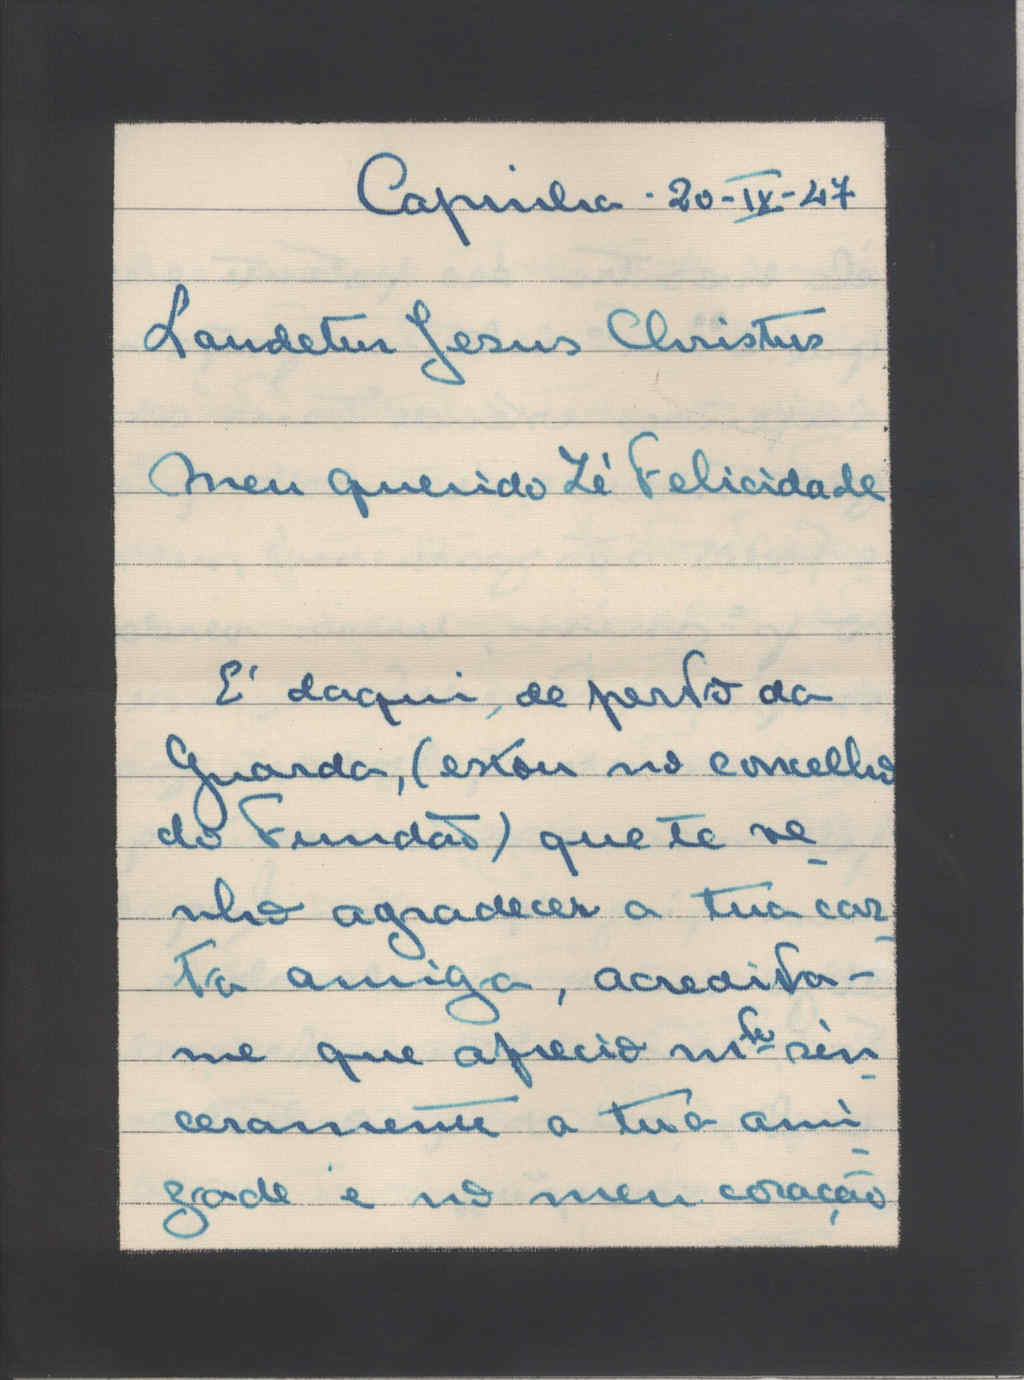 Capinha - 20-IX-47
Laudetur Jesus Christus
Meu querido Zé Felicidade
E' daqui, de perto da
Guarda, (estou no concelho
do Fundão) que te ve-
nho agradecer a tua car-
ta amiga, acredita-
me que aprecio mto sin-
ceramente a tua ami-
zade e no meu coração